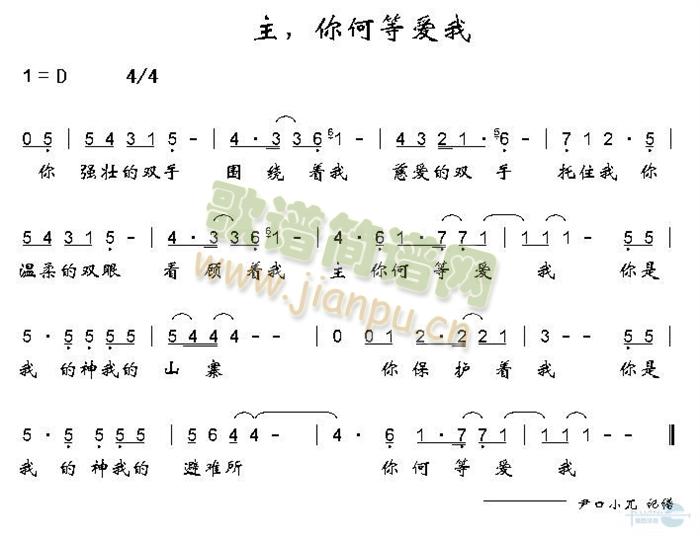 主，你何等爱我
1=D 4/4
0 5 | 5 4 3 1 5 - | 4 · 3 3 6 6 1 - | 4 3 2 1 · 5 6 - | 7 1 2 · 5 |
你 强壮的双手 围绕着我 慈爱的双手 托住我 你
5 4 3 1 5 - | 4 · 3 3 6 6 1 - | 4 · 6 1 · 7 7 1 | 1 1 1 - 5 5 |
温柔的双眼 看顾着我 主你何等爱我 你是
5 · 5 5 5 5 | 5 4 4 4 - - | 0 0 1 2 · 2 2 1 | 3 - - 5 5 |
我的神我的山寨 你保护着我 你是
5 · 5 5 5 5 | 5 6 4 4 - - | - · 6 1 · 7 7 1 | 1 1 1 - - ‖
我的神我的避难所 你何等爱我
尹口小兀 记谱
歌谱简谱网
www.jianpu.cn